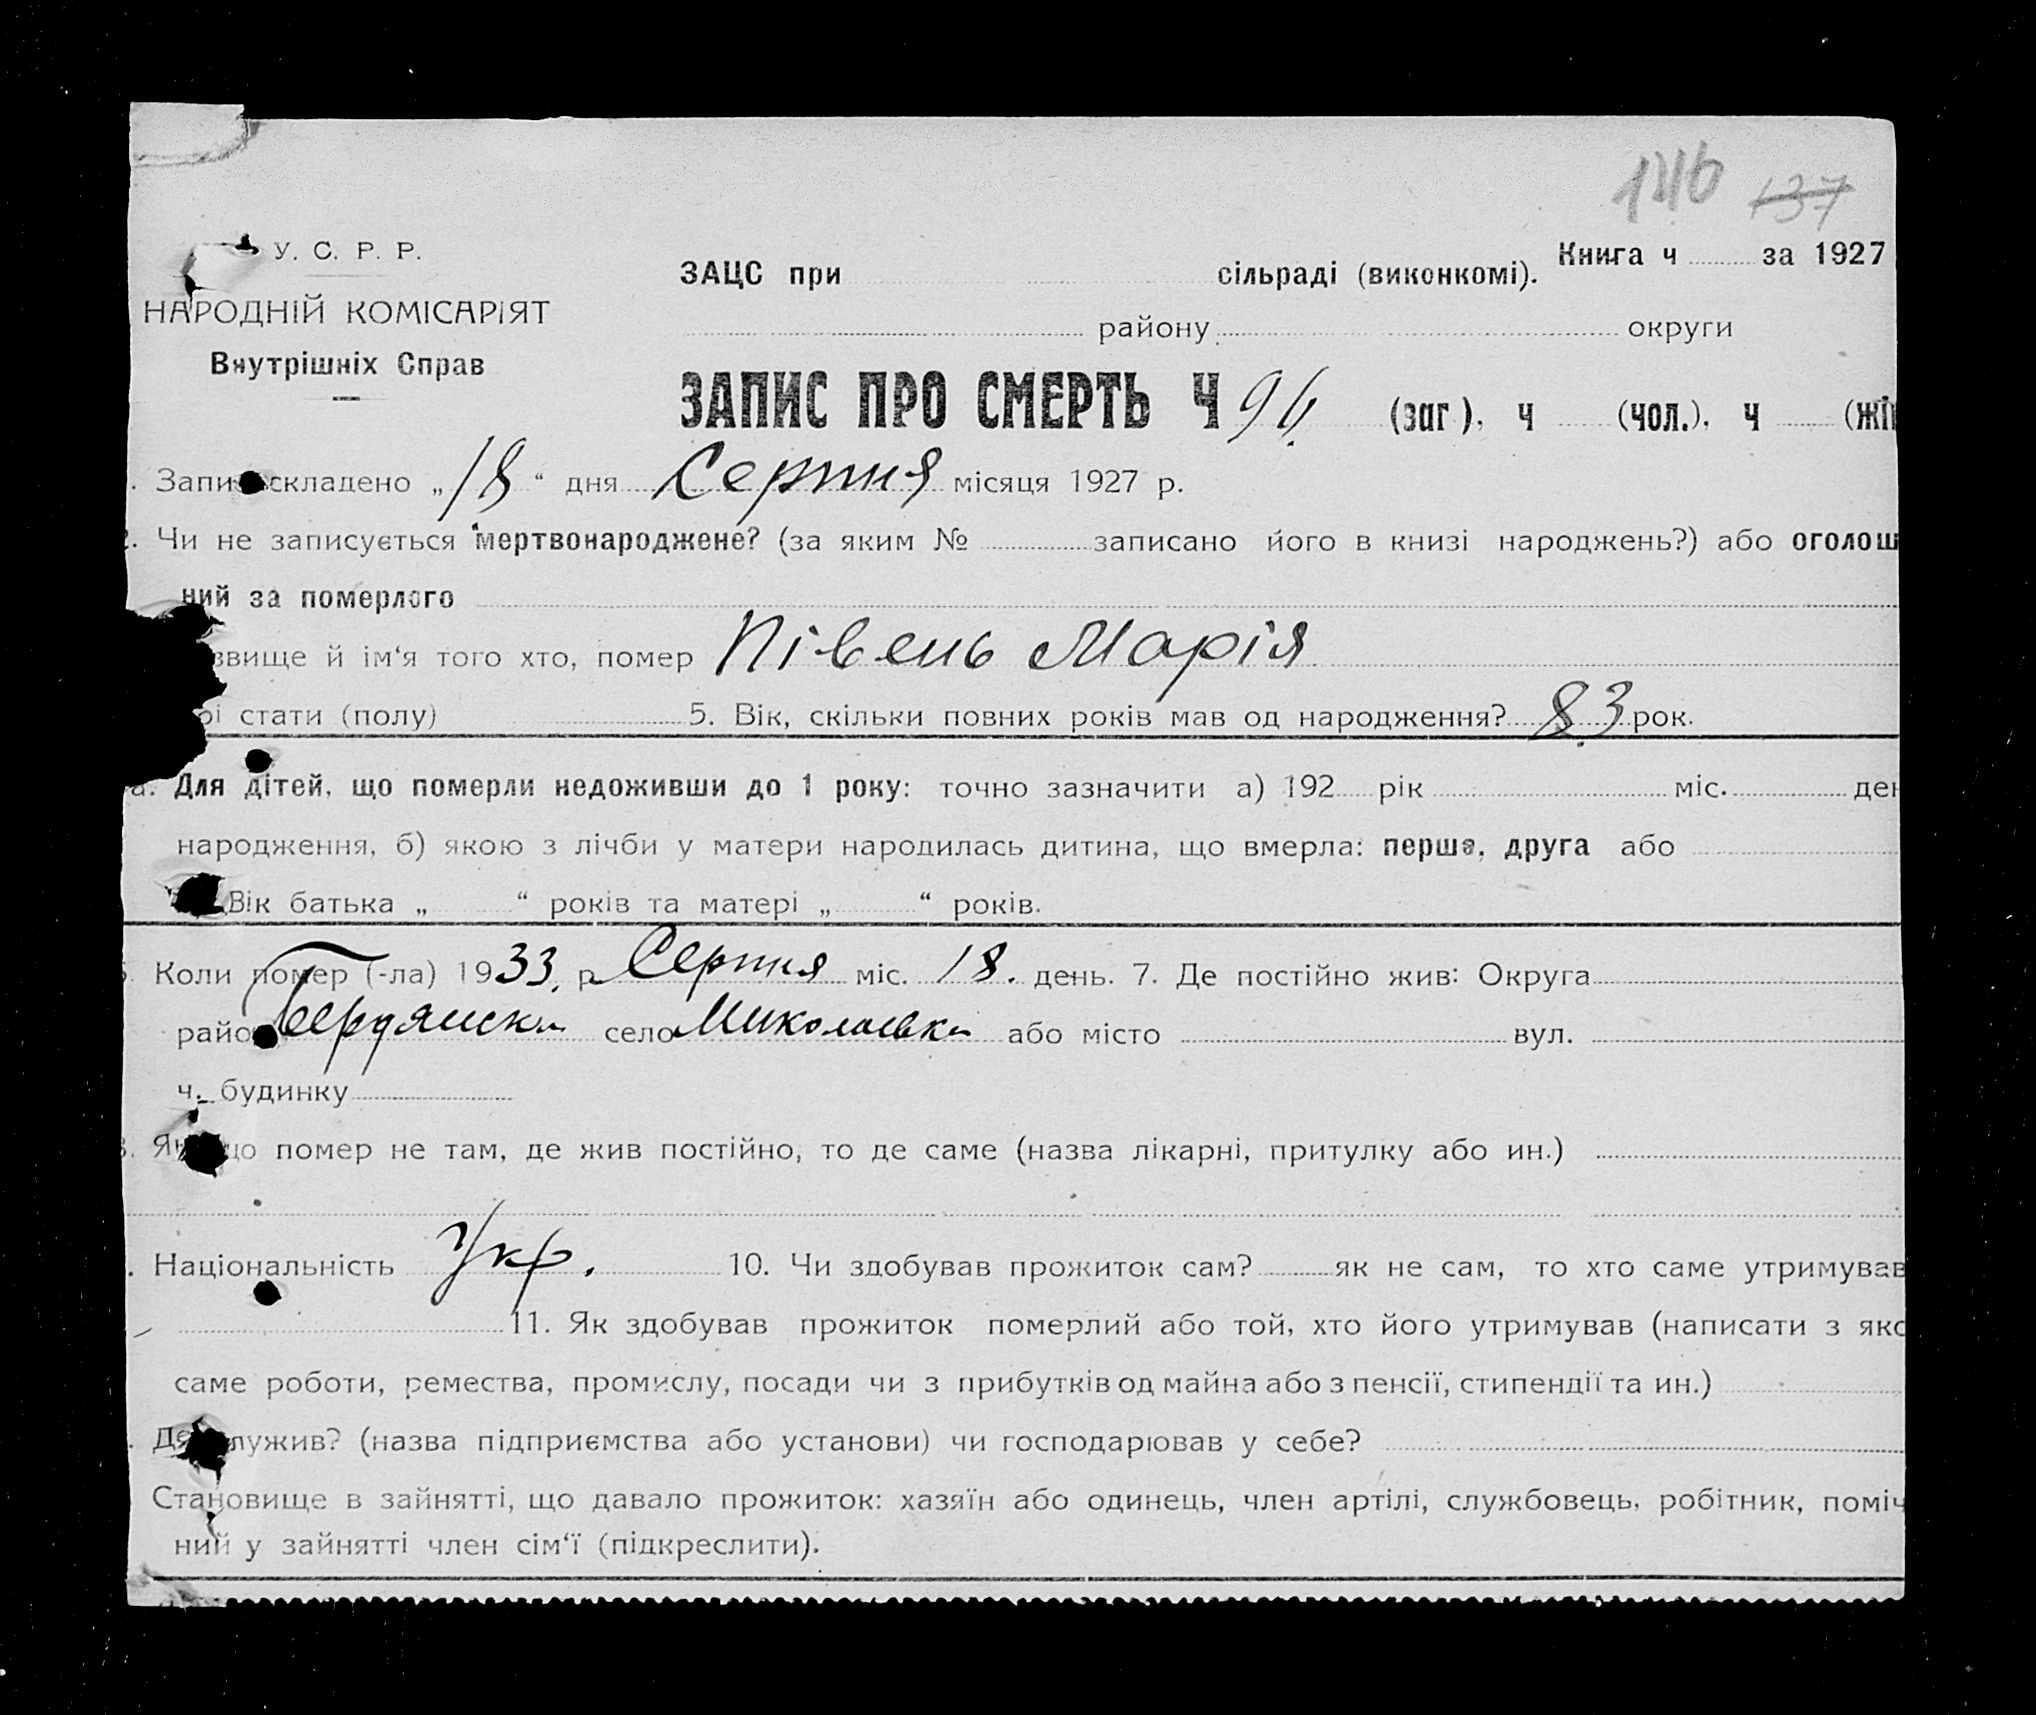 146 137
У. С. Р. Р.
НАРОДНІЙ КОМІСАРІЯТ
Внутрішніх Справ
Книга ч за 1927
ЗАЦС при сільраді (виконкомі).
району округи
ЗАПИС ПРО СМЕРТЬ Ч 96 (заг.), ч (чол.), ч
Запис складено „18“ дня Серпня місяця 1927 р.
Чи не записується мертвонароджене? (за яким № записано його в книзі народжень?) або оголош
ний за померлого
звище й ім‘я того хто, помер Півень Марія
рі стати (полу) 5. Вік, скільки повних років мав од народження? 83 рок.
а. Для дітей, що померли недоживши до 1 року: точно зазначити а) 192 рік міс. ден
народження, б) якою з лічби у матери народилась дитина, що вмерла: перша, друга або
Вік батька „ “ років та матері „ “ років.
Коли помер (-ла) 1933. р Серпня міс. 18. день. 7. Де постійно жив: Округа
район Бердянськ село Миколаївка або місто вул.
ч. будинку
Якщо помер не там, де жив постійно, то де саме (назва лікарні, притулку або ин.)
Національність Укр. 10. Чи здобував прожиток сам? як не сам, то хто саме утримував
11. Як здобував прожиток померлий або той, хто його утримував (написати з яко
саме роботи, ремества, промислу, посади чи з прибутків од майна або з пенсії, стипендії та ин.)
Де служив? (назва підприємства або установи) чи господарював у себе?
Становище в зайнятті, що давало прожиток: хазяїн або одинець, член артілі, службовець, робітник, поміч
ний у зайнятті член сім‘ї (підкреслити).